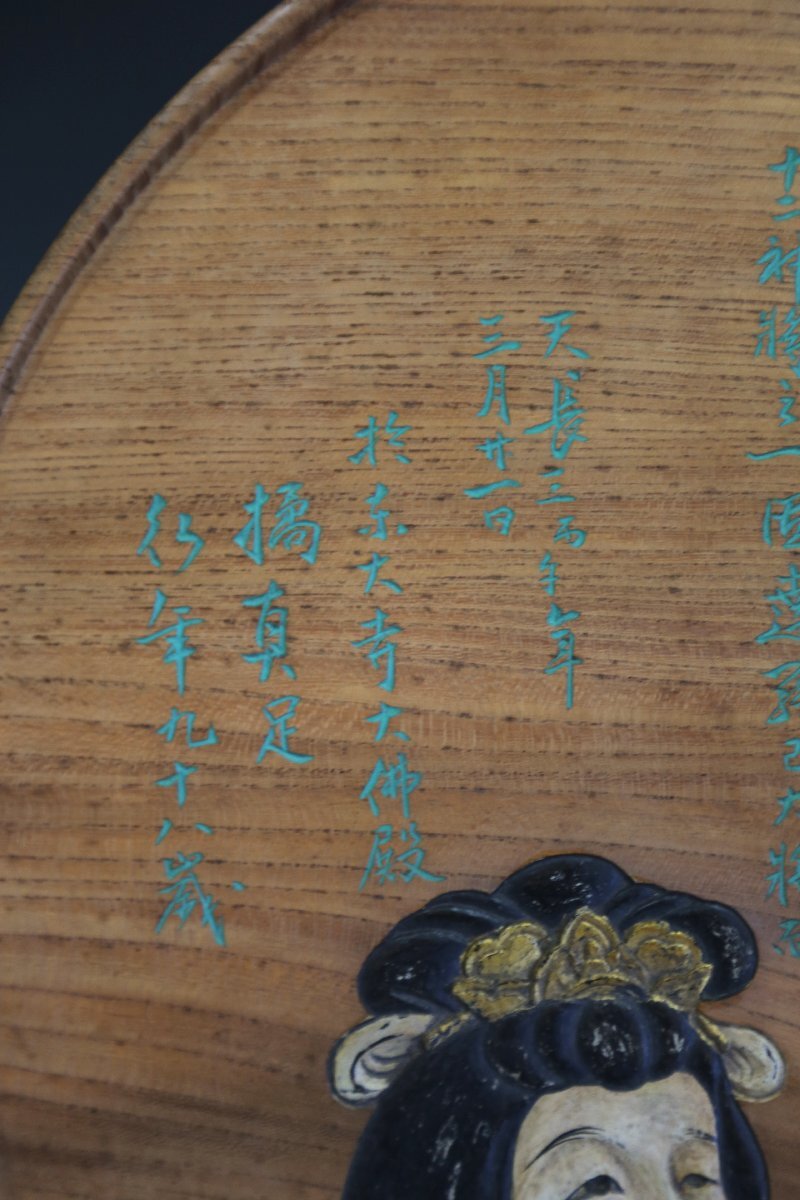 十二神將之一因達羅巳大將
天長三丙午年
三月廿一日
於東大寺大佛殿
橘真足
行年九十八歲